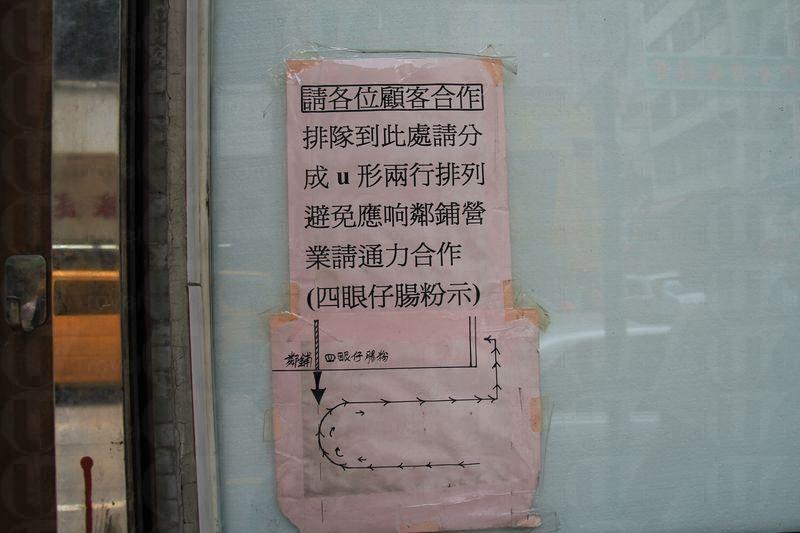 請各位顧客合作
排隊到此處請分
成 u 形兩行排列
避免應响鄰鋪營
業請通力合作
(四眼仔腸粉示)
鄰鋪 四眼仔腸粉